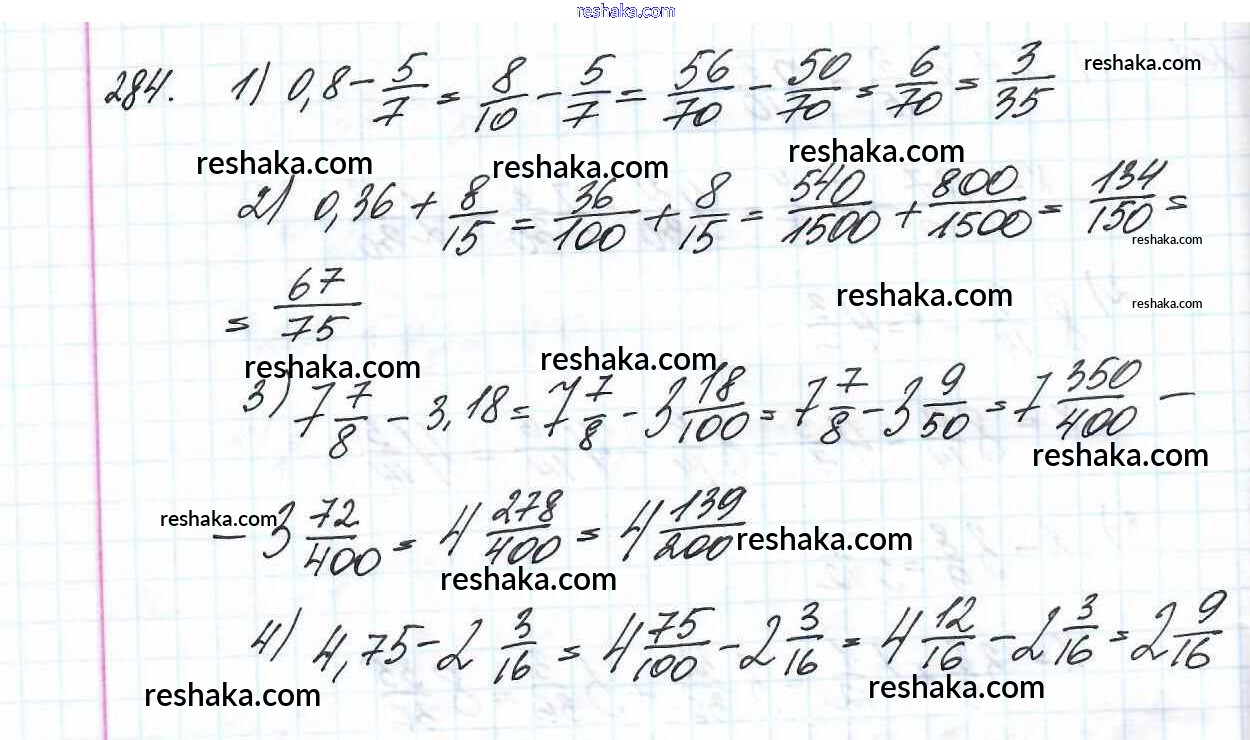 reshaka.com
284. 1) 0,8 - 5/7 = 8/10 - 5/7 = 56/70 - 50/70 = 6/70 = 3/35 reshaka.com
reshaka.com reshaka.com reshaka.com
2) 0,36 + 8/15 = 36/100 + 8/15 = 540/1500 + 800/1500 = 134/150 =
reshaka.com
= 67/75 reshaka.com reshaka.com
reshaka.com reshaka.com
3) 7 7/8 - 3,18 = 7 7/8 - 3 18/100 = 7 7/8 - 3 9/50 = 7 350/400 -
reshaka.com
reshaka.com - 3 72/400 = 4 278/400 = 4 139/200 reshaka.com
reshaka.com
4) 4,75 - 2 3/16 = 4 75/100 - 2 3/16 = 4 12/16 - 2 3/16 = 2 9/16
reshaka.com reshaka.com